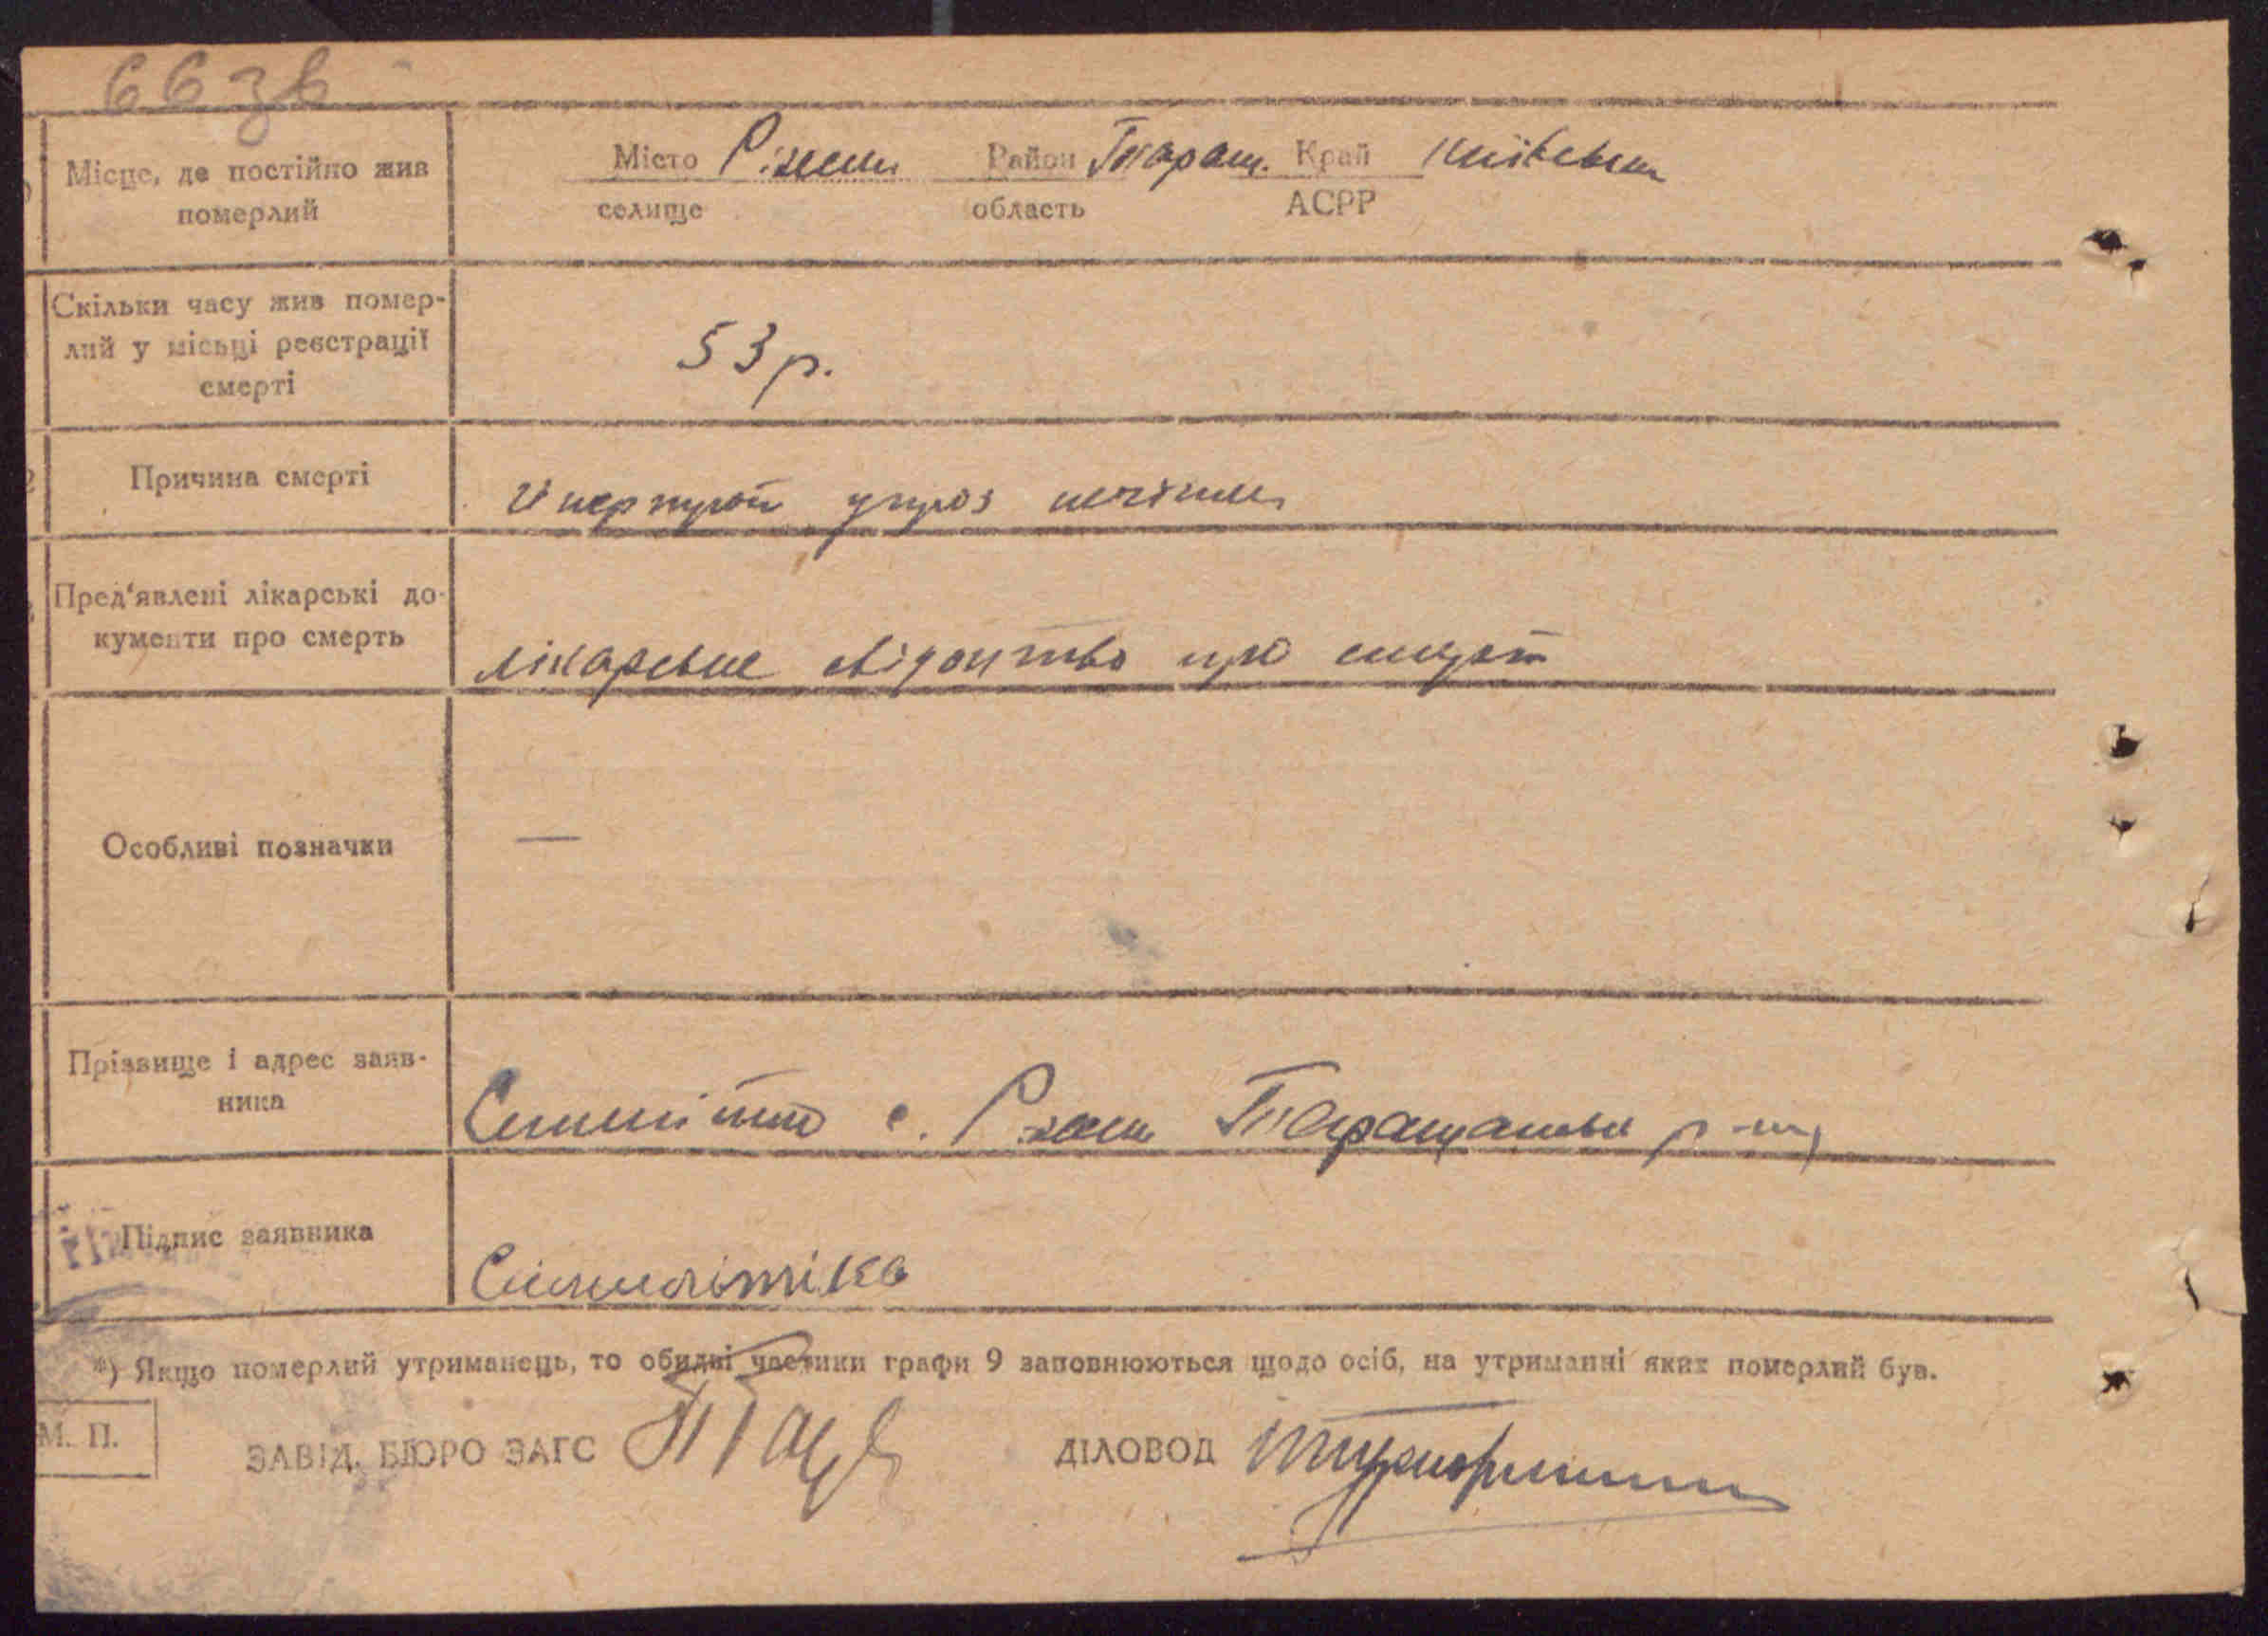 66 зв
Місце, де постійно жив
померлий
Місто Р. Район Таращ. Край Київськ
селище область АСРР
Скільки часу жив помер-
лий у місьці реєстрації
смерті
53 р.
Причина смерті
цироз печінки
Пред'явлені лікарські до-
кументи про смерть
лікарське свідоцтво про смерть
Особливі позначки
—
Прізвище і адрес заяв-
ника
с. Таращанськ р-ну
Підпис заявника
*) Якщо померлий утриманець, то обидві частини графи 9 заповнюються щодо осіб, на утриманні яких померлий був.
М. П.
ЗАВІД. БЮРО ЗАГС ДІЛОВОД